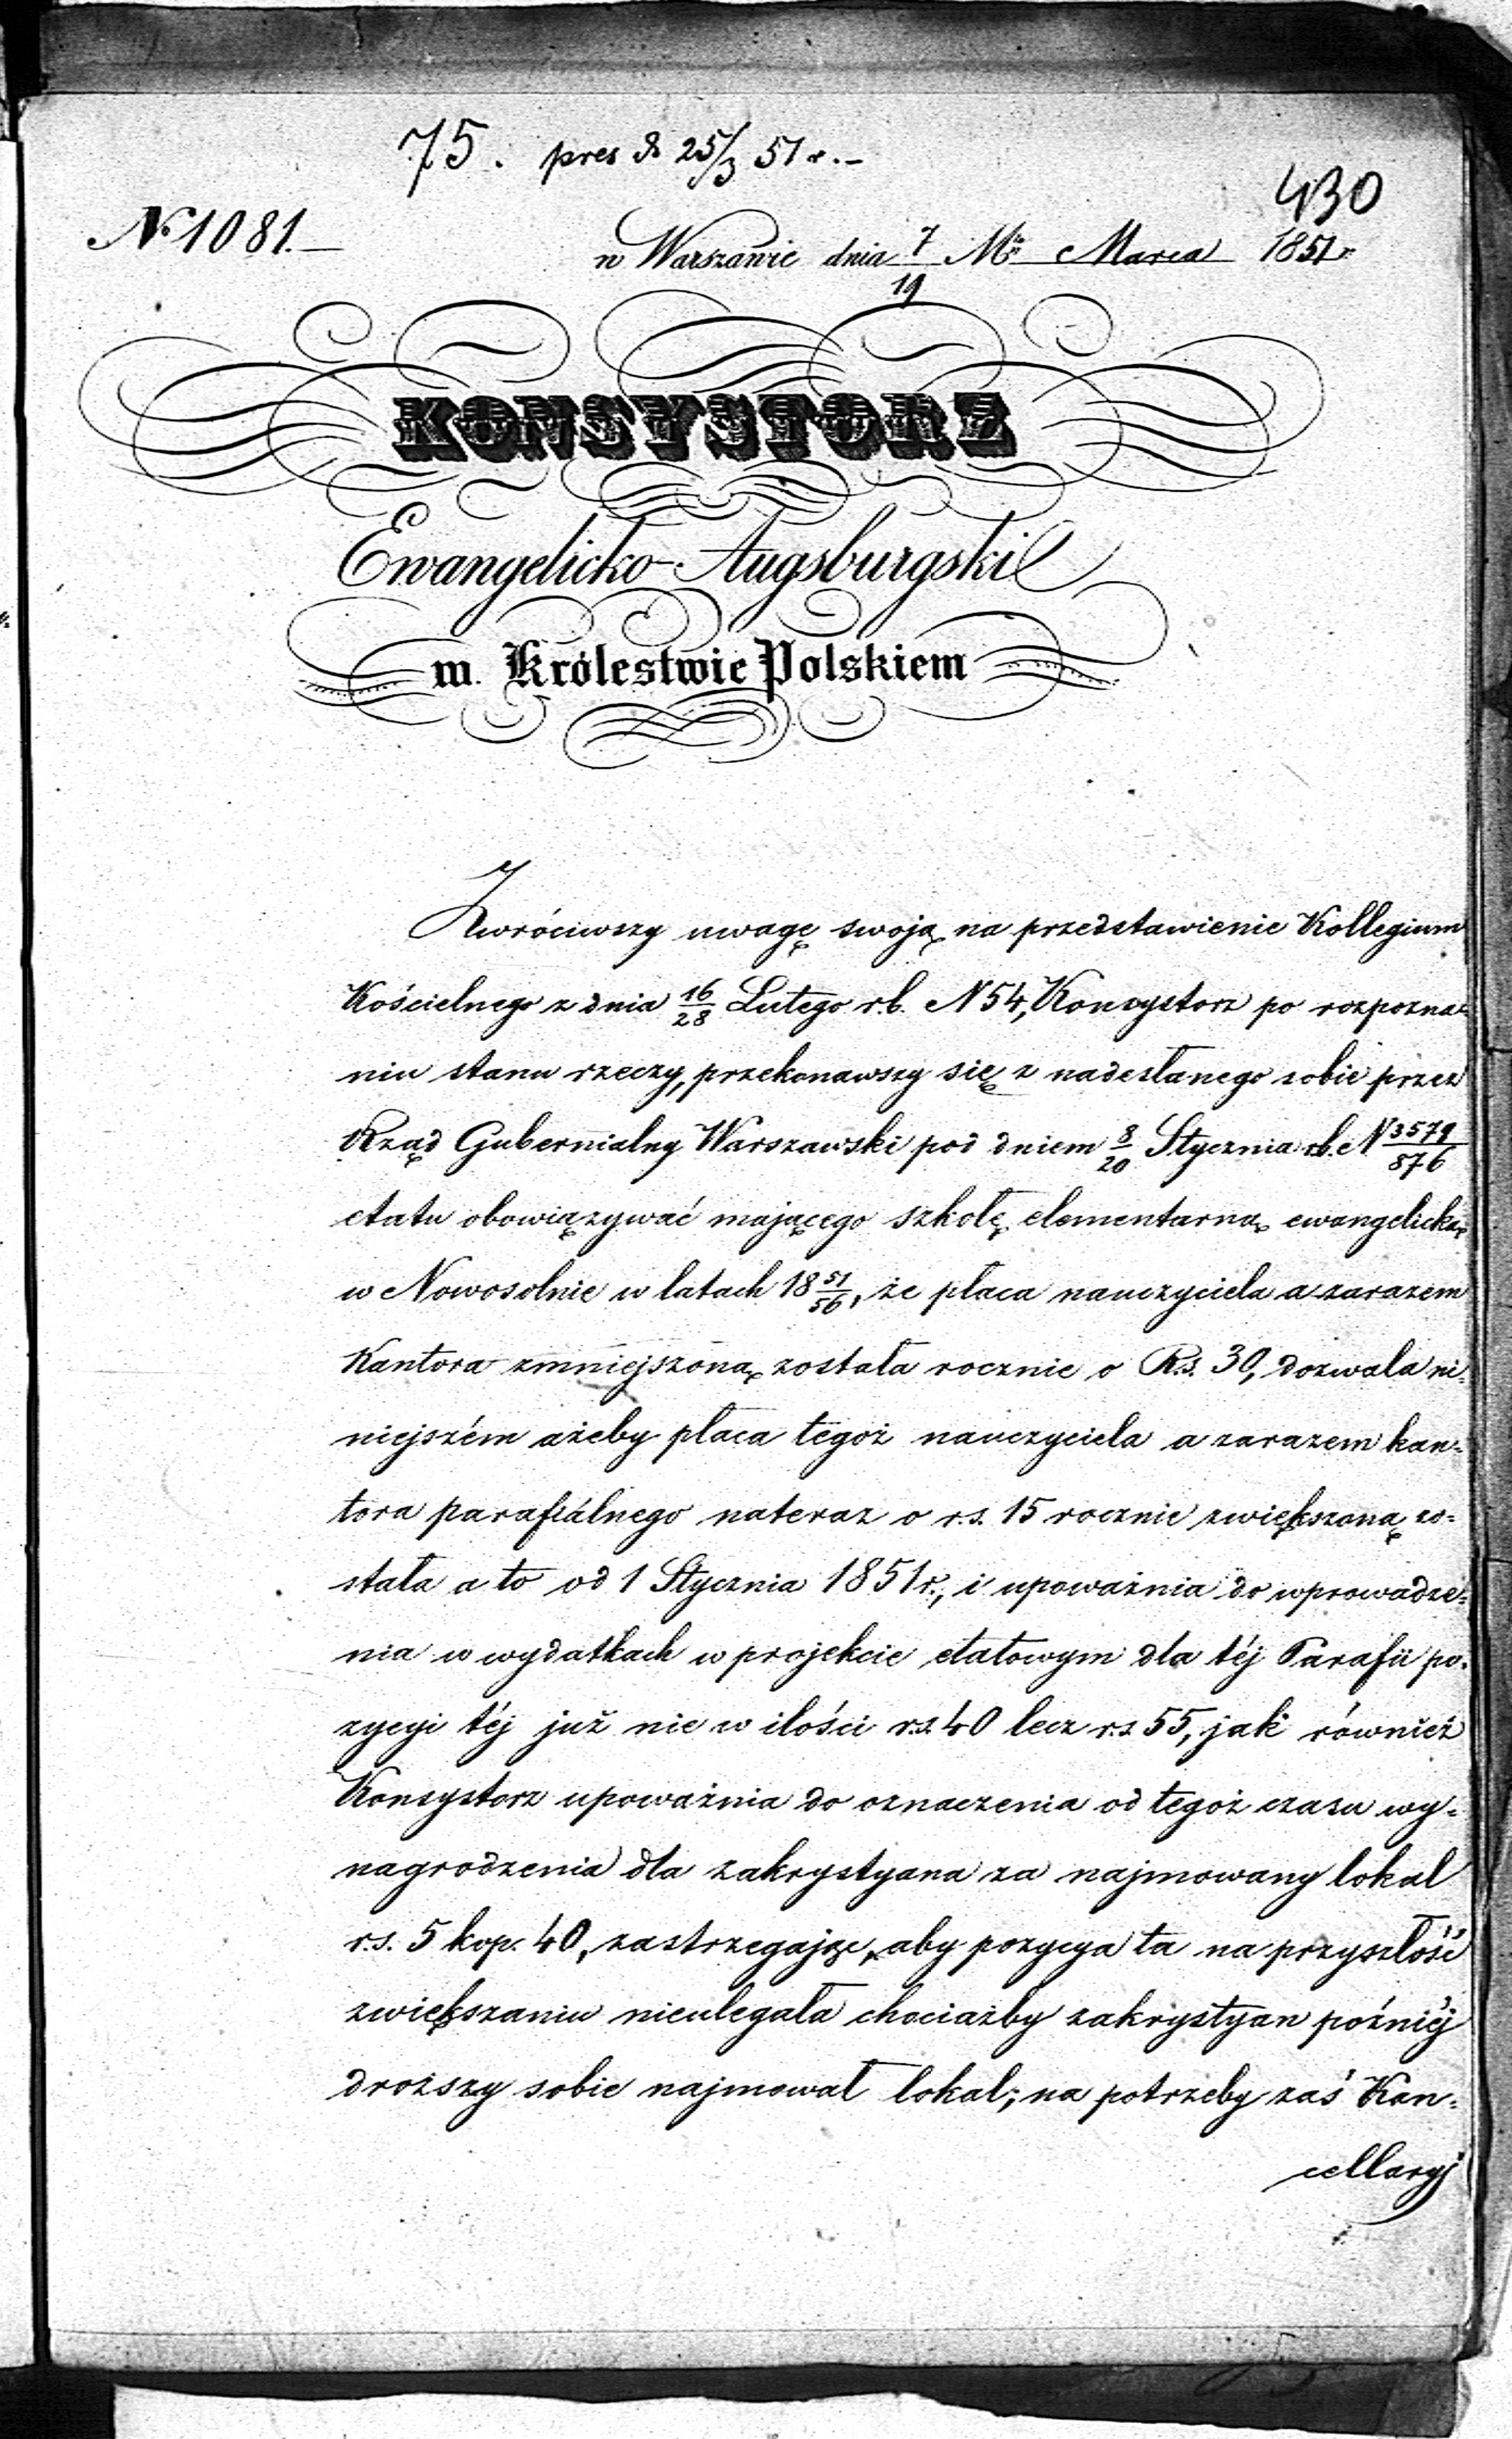 75. pres d 25/3 51 r.-
430
№ 1081.-
w Warszawie dnia 7/19 Mca Marca 1851 r
KONSYSTORZ
Ewangelicko-Augsburgski
w. Królestwie Polskiem
Zwróciwszy uwagę swoję na przedstawienie Kollegium
Kościelnego z dnia 16/28 Lutego r.b. N 54, Konsystorz po rozpozna=
niu stanu rzeczy, przekonawszy się z nadesłanego sobie przez
Rząd Gubernialny Warszawski pod dniem 8/20 Stycznia r.b. N 3579/876
etatu obowiązywać mającego szkołę elementarną ewangelicką
w Nowosolnie w latach 18 51/56, że płaca nauczyciela a zarazem
Kantora zmniejszoną została rocznie o R.s. 30, dozwala ni=
niejszém ażeby płaca tegoż nauczyciela a zarazem kan=
tora parafiálnego nateraz o r.s. 15 rocznie zwiększoną zo=
stała a to od 1 Stycznia 1851 r., i upoważnia do wprowadze=
nia w wydatkach w projekcie etatowym dla téj Parafii po=
zycyi téj już nie w ilości r.s. 40 lecz r.s 55, jak również
Konsystorz upoważnia do oznaczenia od tegoż czasu wy=
nagrodzenia dla zakrystyana za najmowany lokal
r.s. 5 kop. 40, zastrzegając, aby pozycya ta na przyszłość
zwiększaniu nieulegała chociażby zakrystyan późniéj
droższy sobie najmował lokal; na potrzeby zaś Kan=
cellaryj